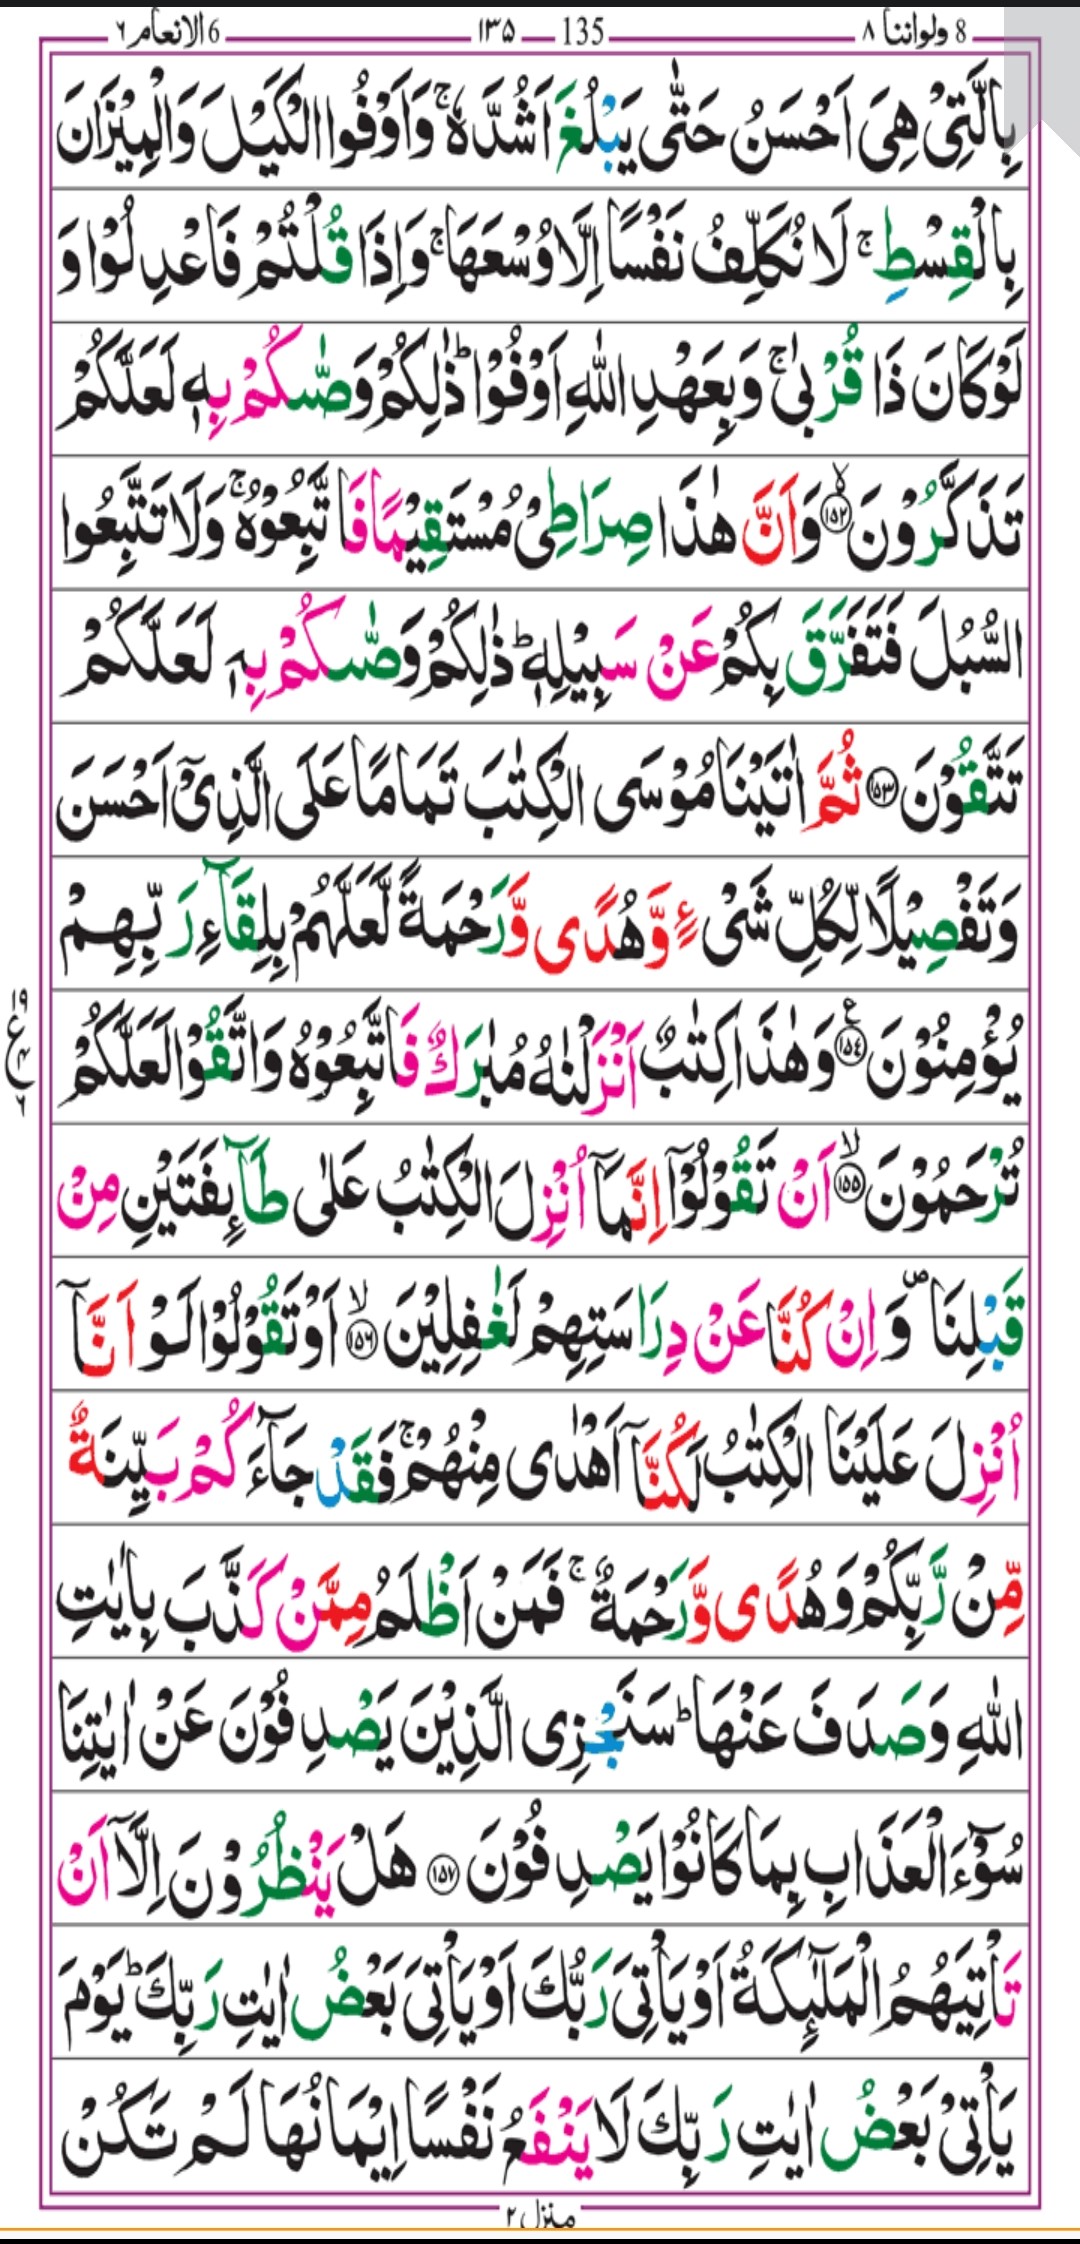 8 ولواننا ٨ 135 ١٣٥ 6 الانعام ٦
بِالَّتِيْ هِيَ اَحْسَنُ حَتّٰى يَبْلُغَ اَشُدَّهٗ ۚ وَاَوْفُوا الْكَيْلَ وَالْمِيْزَانَ
بِالْقِسْطِ ۚ لَا نُكَلِّفُ نَفْسًا اِلَّا وُسْعَهَا ۚ وَاِذَا قُلْتُمْ فَاعْدِلُوْا وَ
لَوْ كَانَ ذَا قُرْبٰى ۚ وَبِعَهْدِ اللّٰهِ اَوْفُوْا ؕ ذٰلِكُمْ وَصّٰىكُمْ بِهٖ لَعَلَّكُمْ
تَذَكَّرُوْنَ ۙ‏﴿١٥٢﴾ وَاَنَّ هٰذَا صِرَاطِيْ مُسْتَقِيْمًا فَاتَّبِعُوْهُ ۚ وَلَا تَتَّبِعُوا
السُّبُلَ فَتَفَرَّقَ بِكُمْ عَنْ سَبِيْلِهٖ ؕ ذٰلِكُمْ وَصّٰىكُمْ بِهٖ لَعَلَّكُمْ
تَتَّقُوْنَ ﴿١٥٣﴾ ثُمَّ اٰتَيْنَا مُوْسَى الْكِتٰبَ تَمَامًا عَلَى الَّذِيْٓ اَحْسَنَ
وَتَفْصِيْلًا لِّكُلِّ شَيْءٍ وَّهُدًى وَّرَحْمَةً لَّعَلَّهُمْ بِلِقَآءِ رَبِّهِمْ
يُؤْمِنُوْنَ ﴿١٥٤﴾ ع وَهٰذَا كِتٰبٌ اَنْزَلْنٰهُ مُبٰرَكٌ فَاتَّبِعُوْهُ وَاتَّقُوْا لَعَلَّكُمْ
١٩ ع ٤ ٦
تُرْحَمُوْنَ ۙ‏﴿١٥٥﴾ اَنْ تَقُوْلُوْٓا اِنَّمَآ اُنْزِلَ الْكِتٰبُ عَلٰى طَآئِفَتَيْنِ مِنْ
قَبْلِنَا ۪ وَاِنْ كُنَّا عَنْ دِرَاسَتِهِمْ لَغٰفِلِيْنَ ۙ‏﴿١٥٦﴾ اَوْ تَقُوْلُوْا لَوْ اَنَّآ
اُنْزِلَ عَلَيْنَا الْكِتٰبُ لَكُنَّآ اَهْدٰى مِنْهُمْ ۚ فَقَدْ جَآءَكُمْ بَيِّنَةٌ
مِّنْ رَّبِّكُمْ وَهُدًى وَّرَحْمَةٌ ۚ فَمَنْ اَظْلَمُ مِمَّنْ كَذَّبَ بِاٰيٰتِ
اللّٰهِ وَصَدَفَ عَنْهَا ؕ سَنَجْزِى الَّذِيْنَ يَصْدِفُوْنَ عَنْ اٰيٰتِنَا
سُوْٓءَ الْعَذَابِ بِمَا كَانُوْا يَصْدِفُوْنَ ﴿١٥٧﴾ هَلْ يَنْظُرُوْنَ اِلَّآ اَنْ
تَاْتِيَهُمُ الْمَلٰٓئِكَةُ اَوْ يَاْتِيَ رَبُّكَ اَوْ يَاْتِيَ بَعْضُ اٰيٰتِ رَبِّكَ ؕ يَوْمَ
يَاْتِيْ بَعْضُ اٰيٰتِ رَبِّكَ لَا يَنْفَعُ نَفْسًا اِيْمَانُهَا لَمْ تَكُنْ
منزل ٢